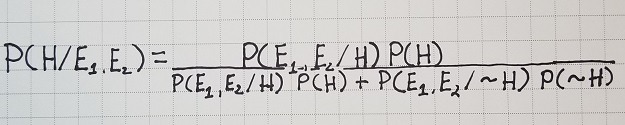 P(H/E₁,E₂) = P(E₁,E₂/H) P(H)
P(E₁,E₂/H) P(H) + P(E₁,E₂/~H) P(~H)